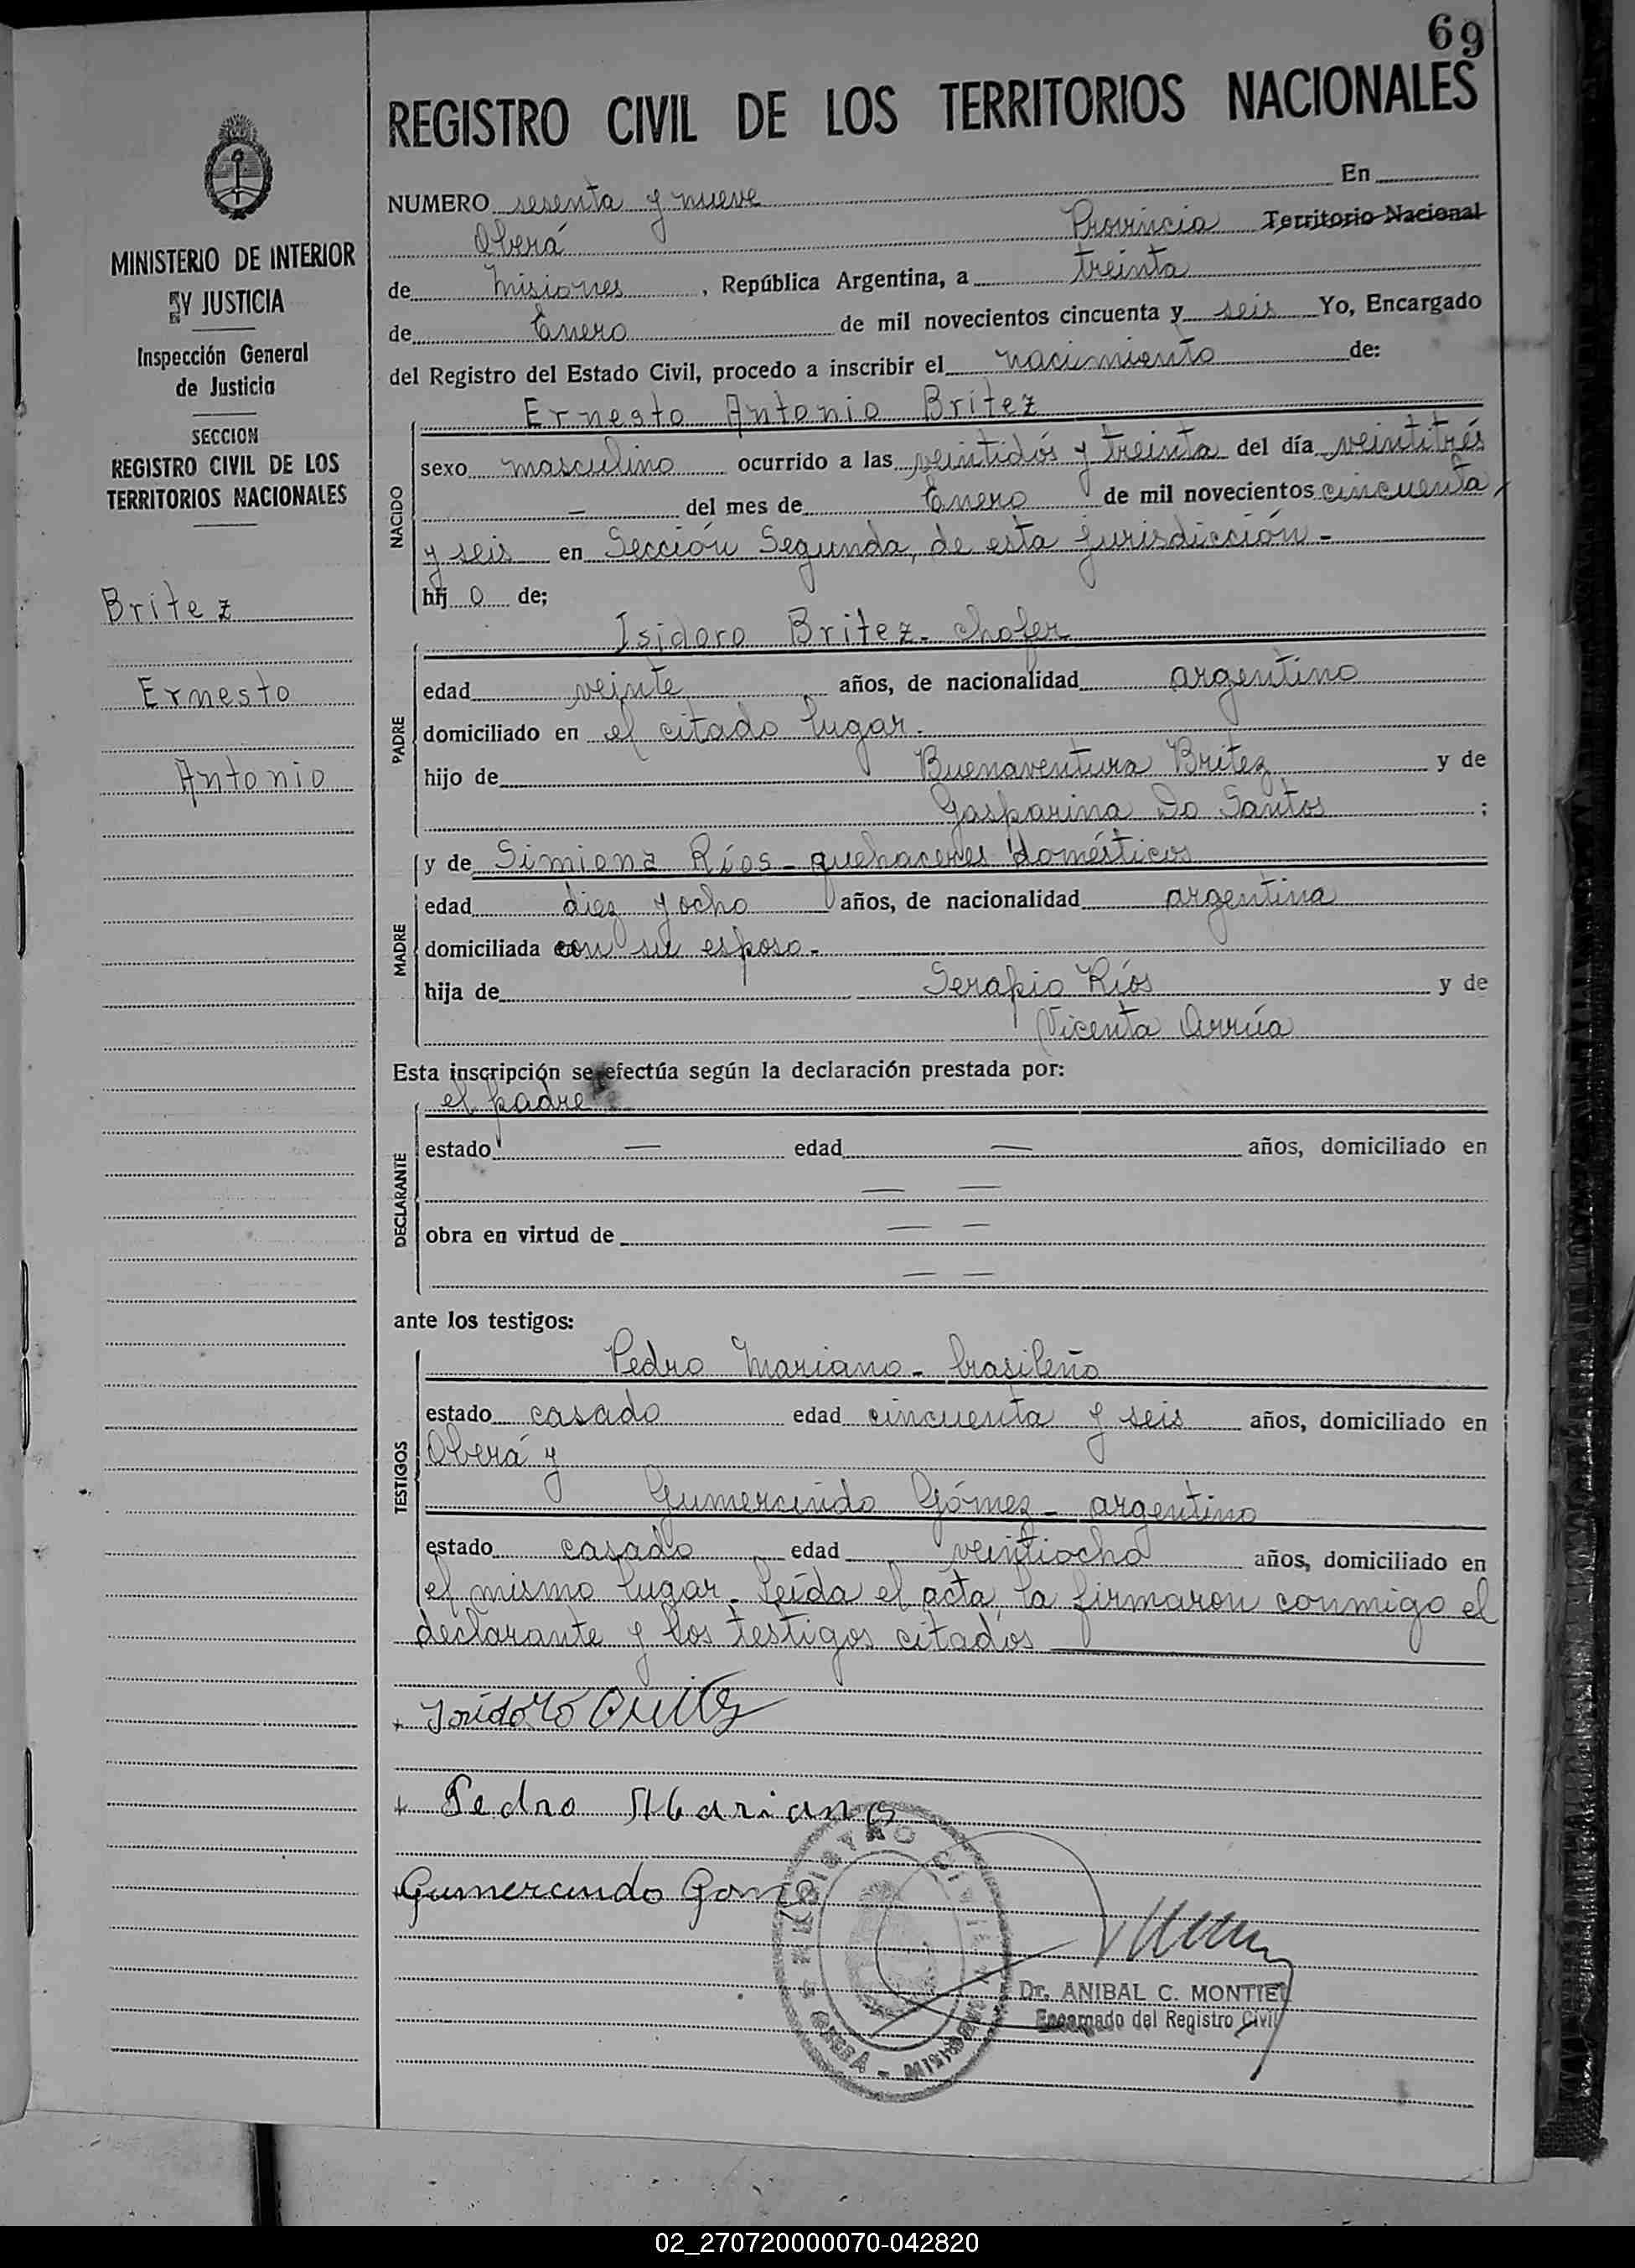 69
REGISTRO CIVIL DE LOS TERRITORIOS NACIONALES
NUMERO sesenta y nueve En
Oberá Provincia Territorio Nacional
de Misiones, República Argentina, a treinta
de Enero de mil novecientos cincuenta y seis Yo, Encargado
del Registro del Estado Civil, procedo a inscribir el nacimiento de:
Ernesto Antonio Britez
NACIDO
sexo masculino ocurrido a las veintidós y treinta del día veintitrés
— del mes de Enero de mil novecientos cincuenta
y seis en Sección Segunda, de esta jurisdicción -
hij o de;
PADRE
Isidoro Britez - chofer
edad veinte años, de nacionalidad argentino
domiciliado en el citado lugar.
hijo de Buenaventura Britez y de
Gasparina Do Santos ;
MADRE
y de Simiona Ríos - quehaceres domésticos
edad diez y ocho años, de nacionalidad argentina
domiciliada con su esposo -
hija de Serapio Ríos y de
Vicenta Arrúa
Esta inscripción se efectúa según la declaración prestada por:
DECLARANTE
el padre
estado — edad — años, domiciliado en
— —
obra en virtud de — —
— —
ante los testigos:
TESTIGOS
Pedro Mariano - brasileño
estado casado edad cincuenta y seis años, domiciliado en
Oberá y
Gumercindo Gómez - argentino
estado casado edad veintiocho años, domiciliado en
el mismo lugar. Leída el acta, la firmaron conmigo el
declarante y los testigos citados
Isidoro Britez
Pedro Mariano
Gumercindo Gomez
REGISTRO CIVIL
OBERA - MISIONES
Dr. ANIBAL C. MONTIEL
Encargado del Registro Civil
MINISTERIO DE INTERIOR
Y JUSTICIA
Inspección General
de Justicia
SECCION
REGISTRO CIVIL DE LOS
TERRITORIOS NACIONALES
Britez
Ernesto
Antonio
02_270720000070-042820